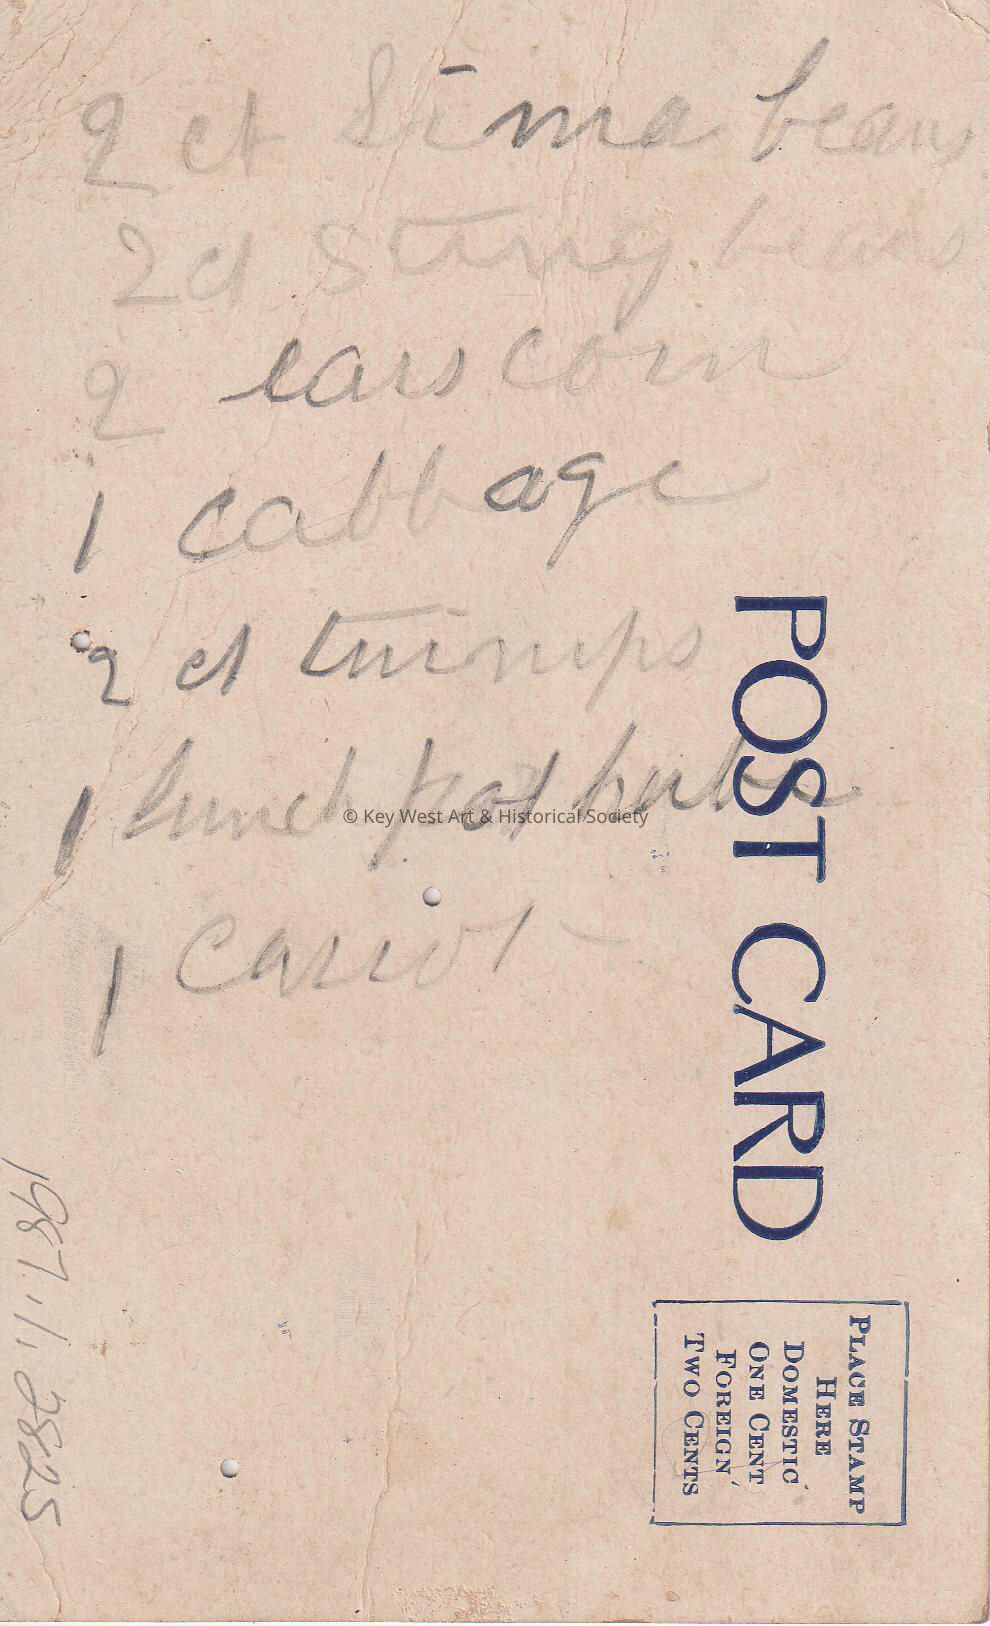 2 ct Lima beans
2 ct string beans
2 ears corn
1 cabbage
2 ct turnips
1 bunch pot herbs
1 carrot
© Key West Art & Historical Society
POST CARD
PLACE STAMP
HERE
DOMESTIC
ONE CENT
FOREIGN
TWO CENTS
1987.11.2825